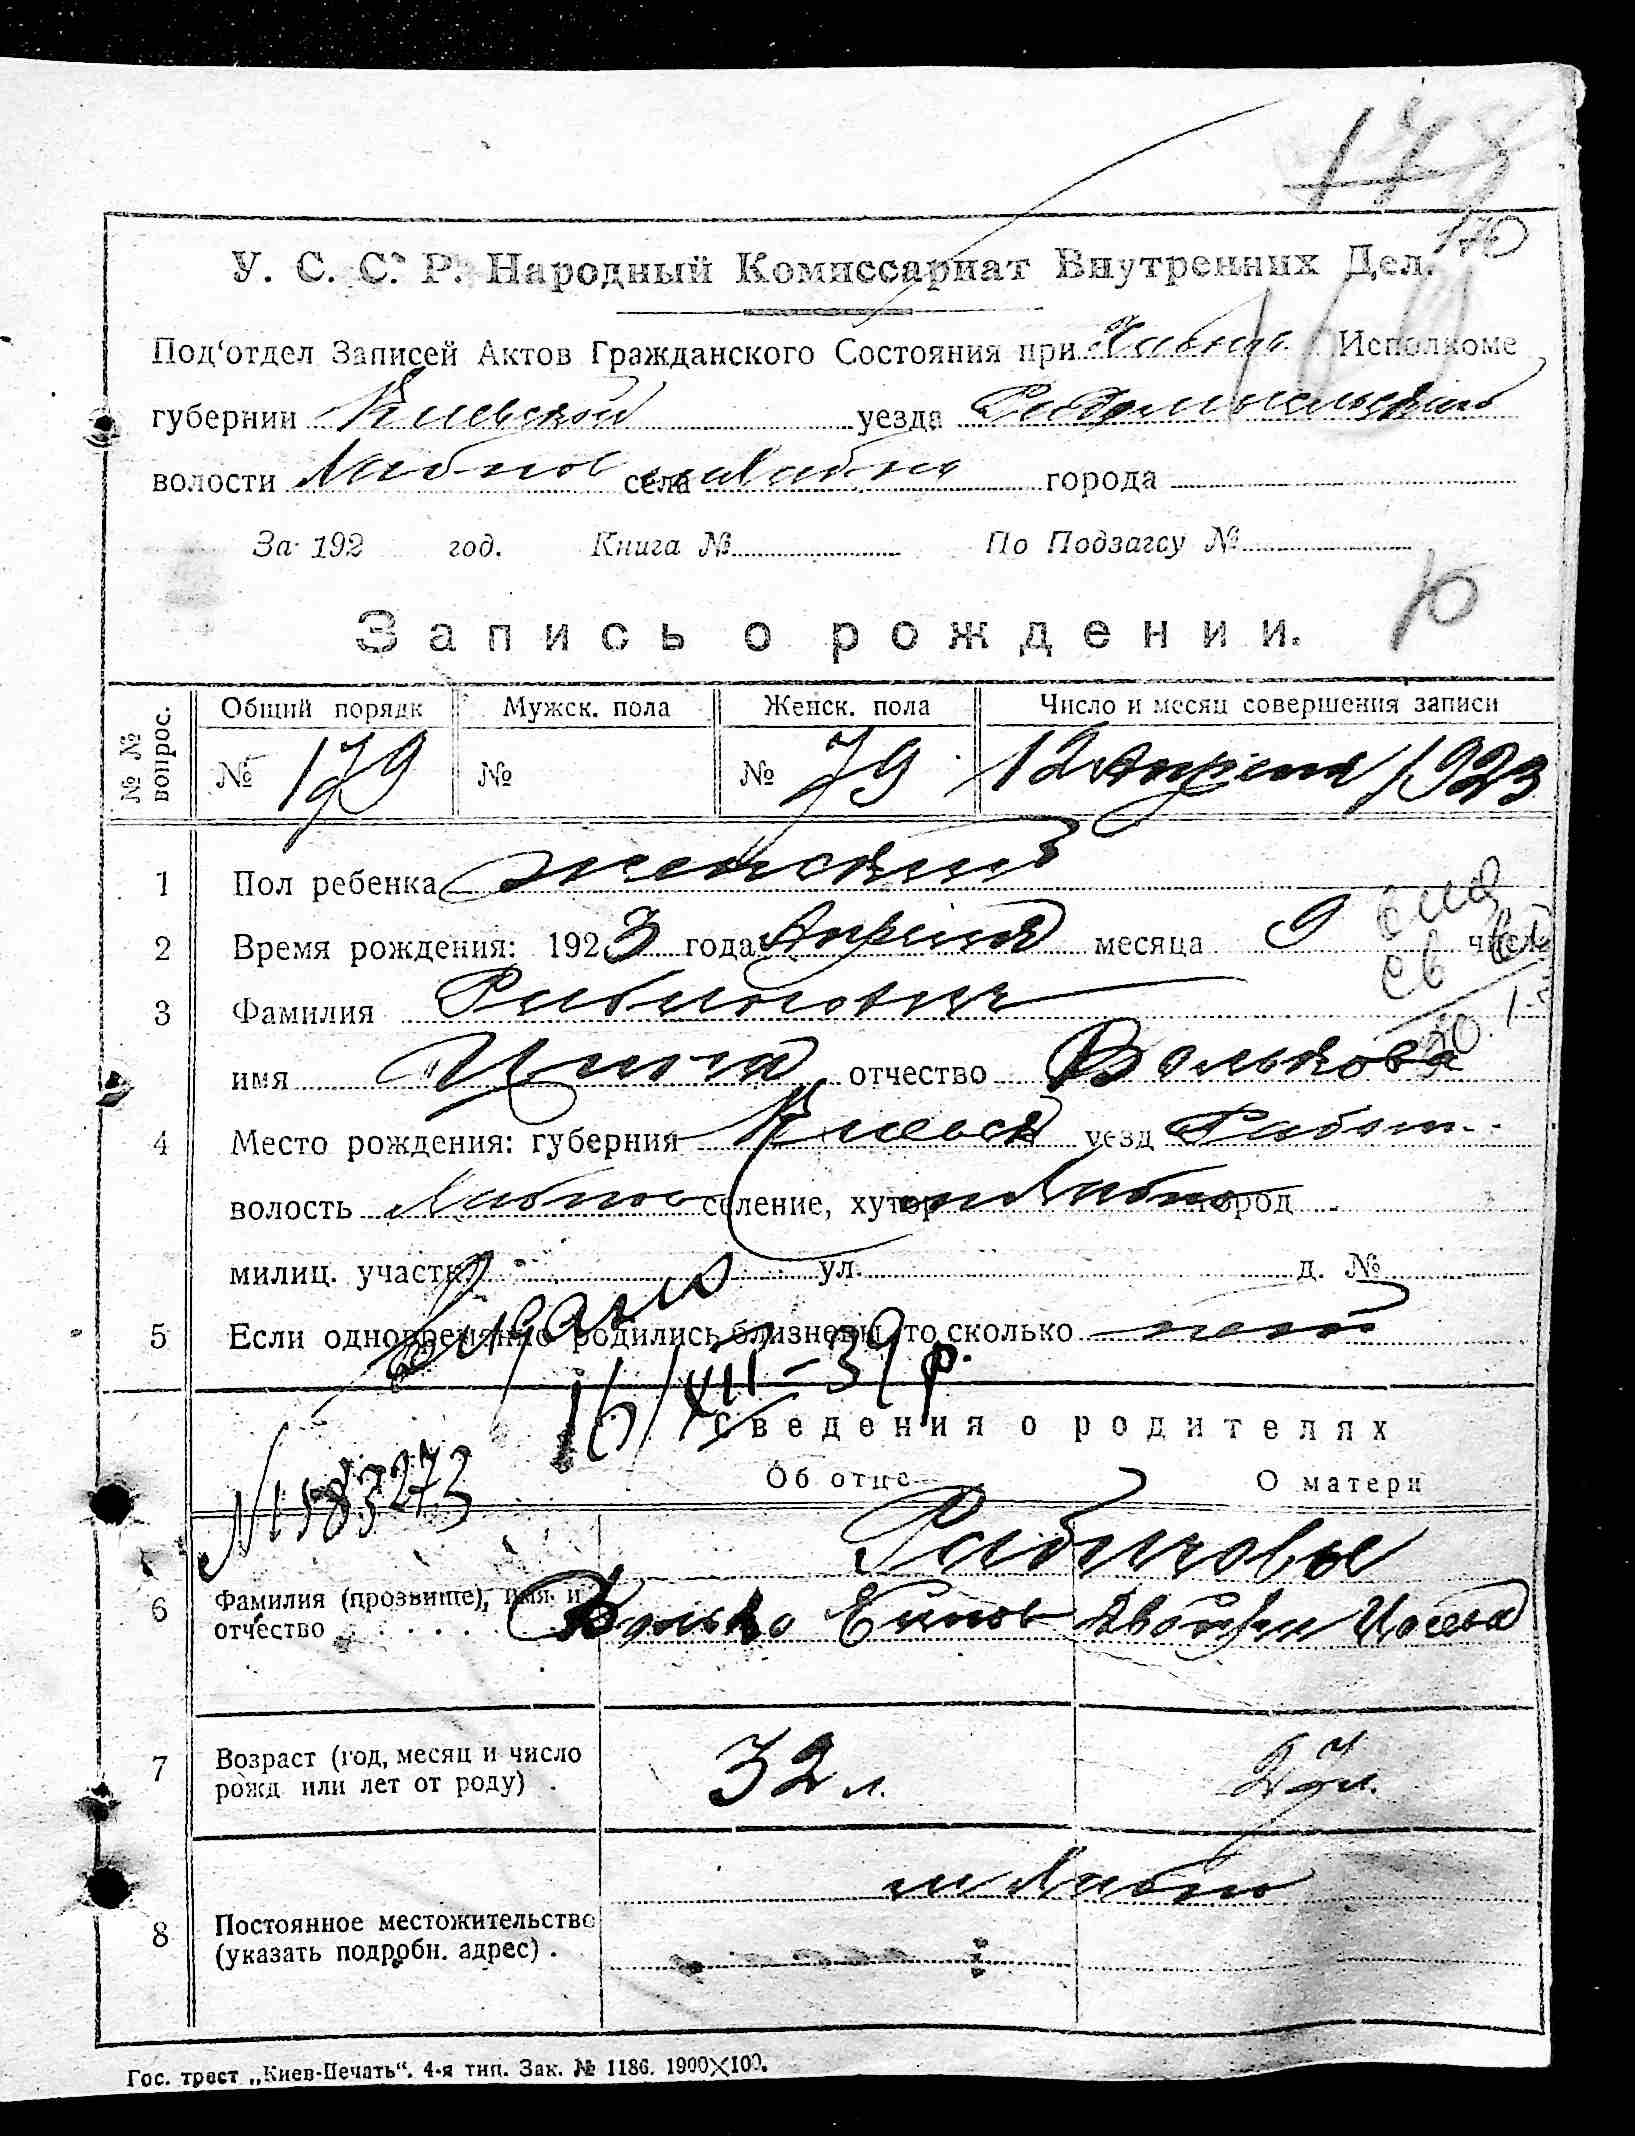 178
170
У. С. С. Р. Народный Комиссариат Внутренних Дел.
Под'отдел Записей Актов Гражданского Состояния при Хабнов Исполкоме
губернии Киевской уезда Радомысльский
волости Хабное села м Хабно города
За 192 год. Книга № По Подзагсу №
Запись о рождении.
№ № вопрос. Общий порядк Мужск. пола Женск. пола Число и месяц совершения записи
№ 179 № № 79 12 Апреля 1923
1 Пол ребенка женский
2 Время рождения: 1923 года Апреля месяца 9 числа
3 Фамилия Рабинович
имя отчество Волькова
4 Место рождения: губерния Киевск уезд Радом..
волость Хабное селение, хутор м Хабно город
милиц. участк ул. д. №
5 Если одновременно родились близнецы, то сколько нет
Видано
16/XII-39 р.
Сведения о родителях
№ 1583273
Об отце О матери
Рабиновы
6 Фамилия (прозвище), имя и отчество Волько Двойри
7 Возраст (год, месяц и число рожд или лет от роду) . 32 л. 27 л.
м Хабно
8 Постоянное местожительство (указать подробн. адрес) .
Гос. трест „Киев-Печать". 4-я тип. Зак. № 1186. 1900×100.